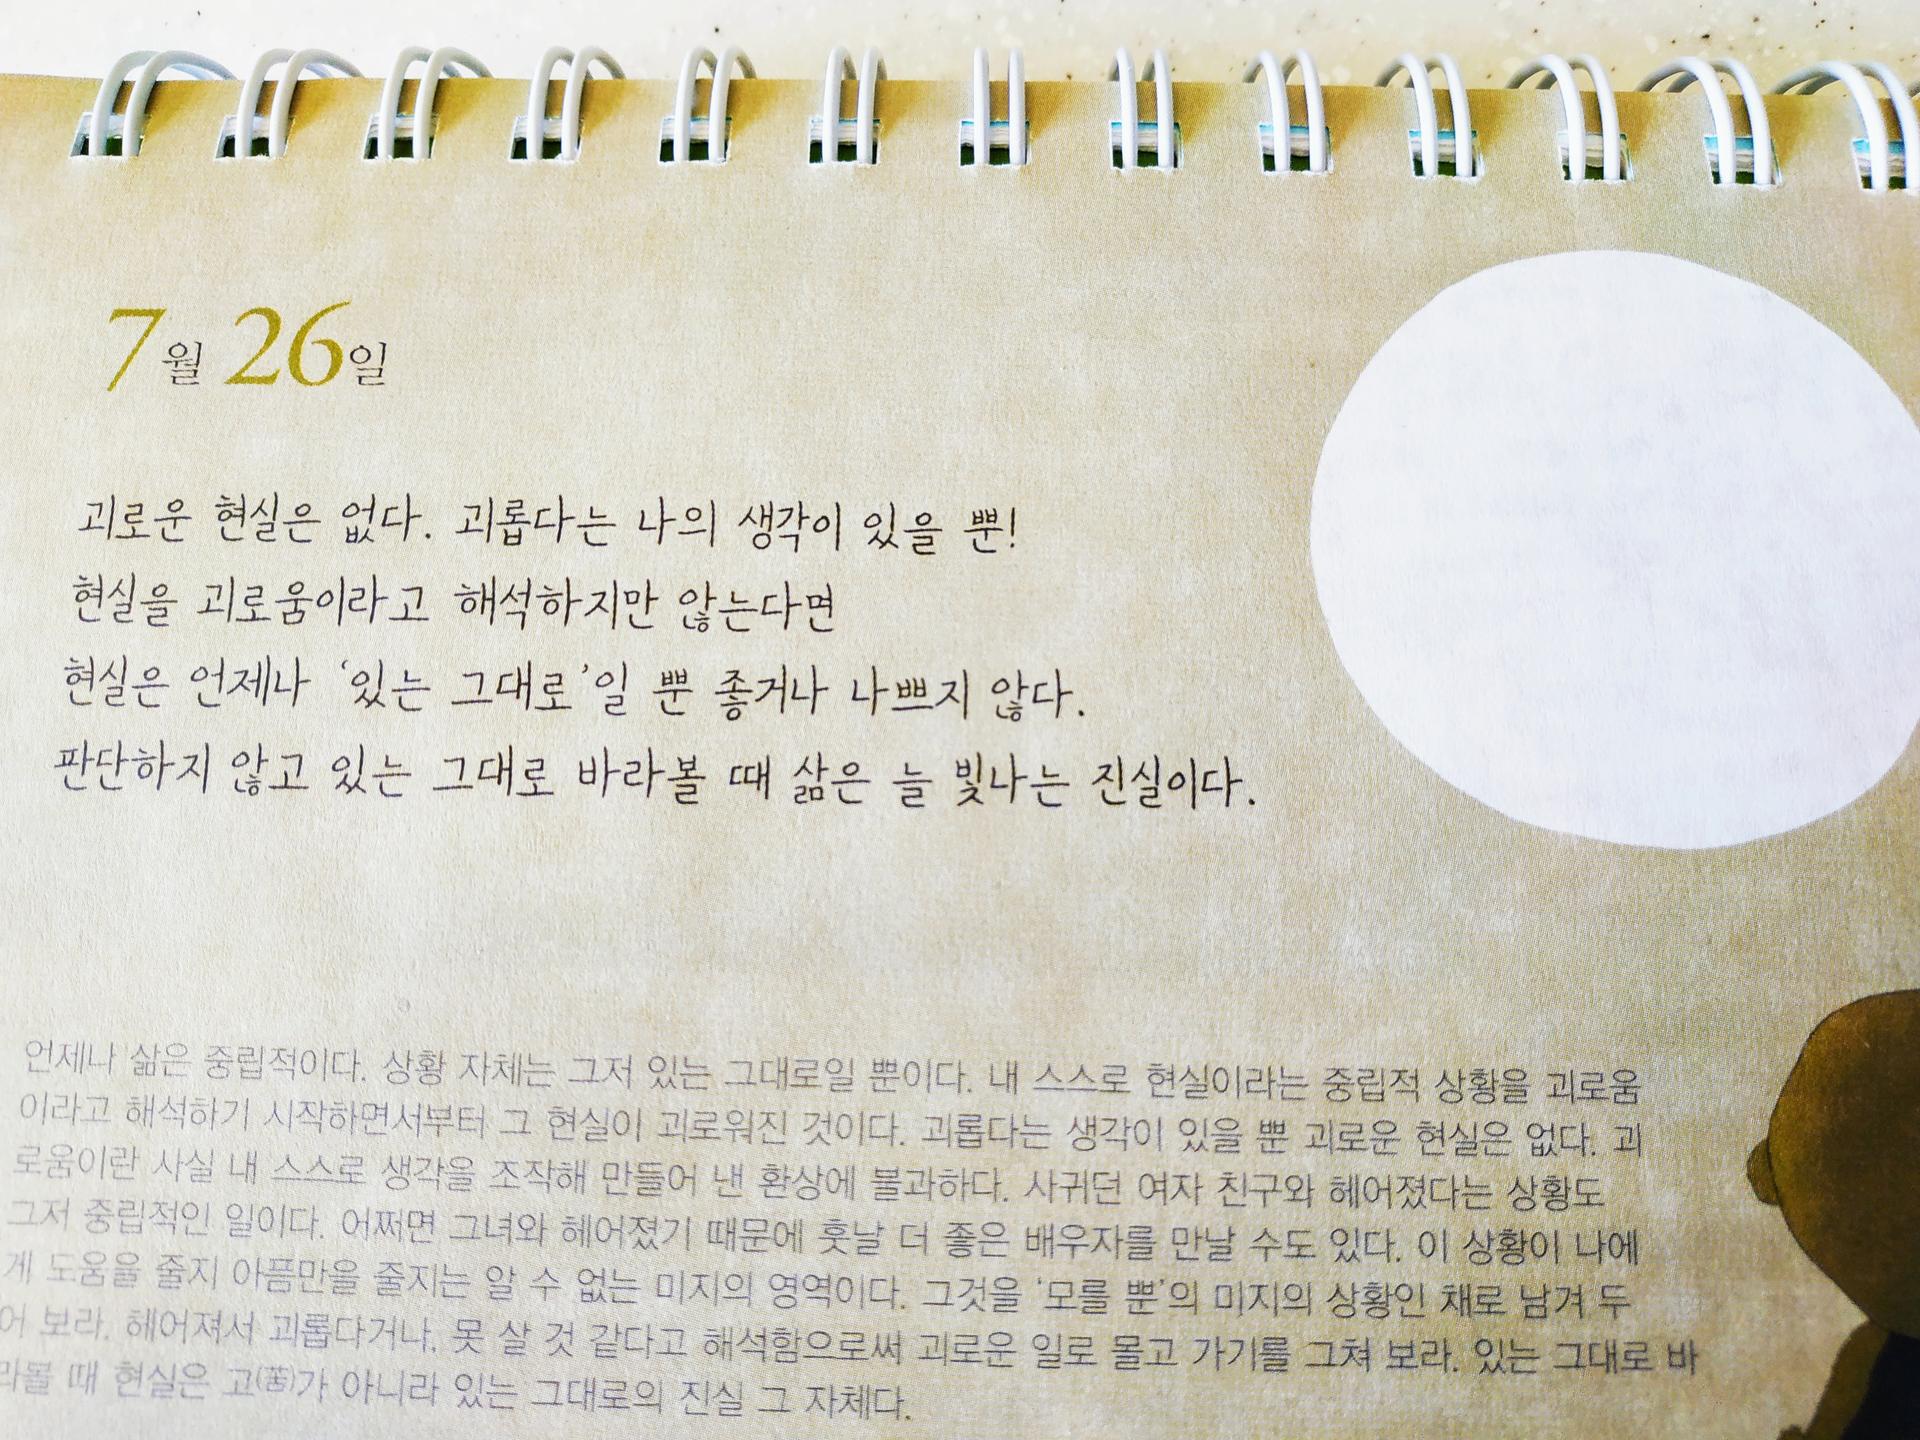 7월 26일
괴로운 현실은 없다. 괴롭다는 나의 생각이 있을 뿐!
현실을 괴로움이라고 해석하지만 않는다면
현실은 언제나 ‘있는 그대로’일 뿐 좋거나 나쁘지 않다.
판단하지 않고 있는 그대로 바라볼 때 삶은 늘 빛나는 진실이다.
언제나 삶은 중립적이다. 상황 자체는 그저 있는 그대로일 뿐이다. 내 스스로 현실이라는 중립적 상황을 괴로움
이라고 해석하기 시작하면서부터 그 현실이 괴로워진 것이다. 괴롭다는 생각이 있을 뿐 괴로운 현실은 없다. 괴
로움이란 사실 내 스스로 생각을 조작해 만들어 낸 환상에 불과하다. 사귀던 여자 친구와 헤어졌다는 상황도
그저 중립적인 일이다. 어쩌면 그녀와 헤어졌기 때문에 훗날 더 좋은 배우자를 만날 수도 있다. 이 상황이 나에
게 도움을 줄지 아픔만을 줄지는 알 수 없는 미지의 영역이다. 그것을 ‘모를 뿐’의 미지의 상황인 채로 남겨 두
어 보라. 헤어져서 괴롭다거나, 못 살 것 같다고 해석함으로써 괴로운 일로 몰고 가기를 그쳐 보라. 있는 그대로 바
라볼 때 현실은 고(苦)가 아니라 있는 그대로의 진실 그 자체다.